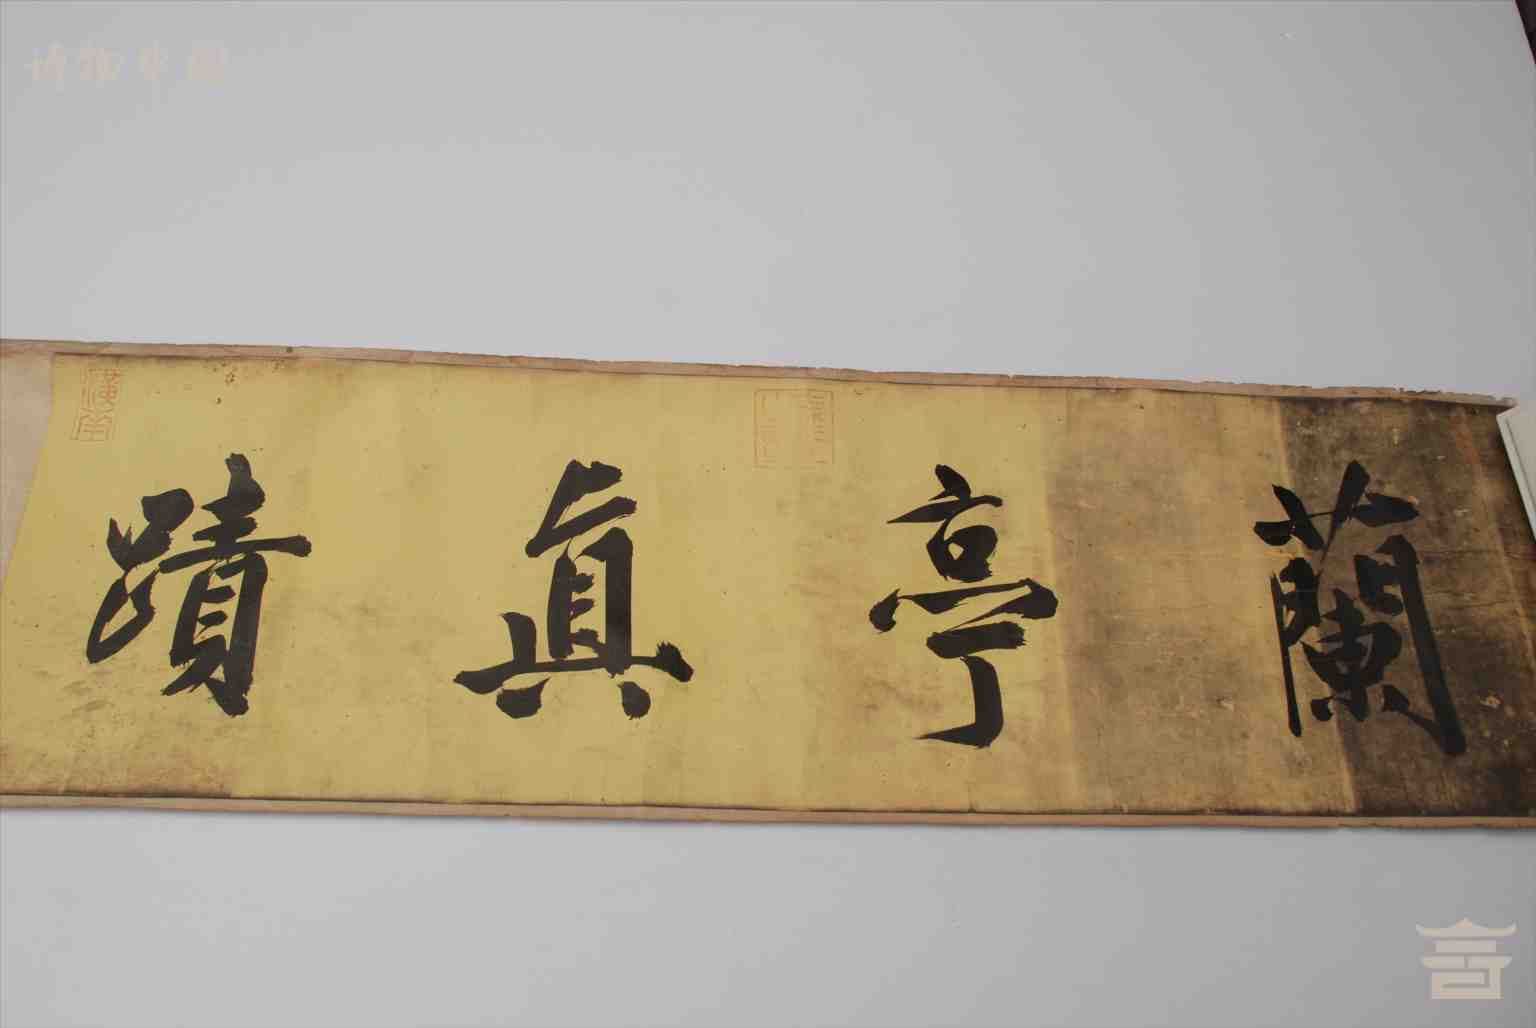 蘭亭真蹟
博物中国